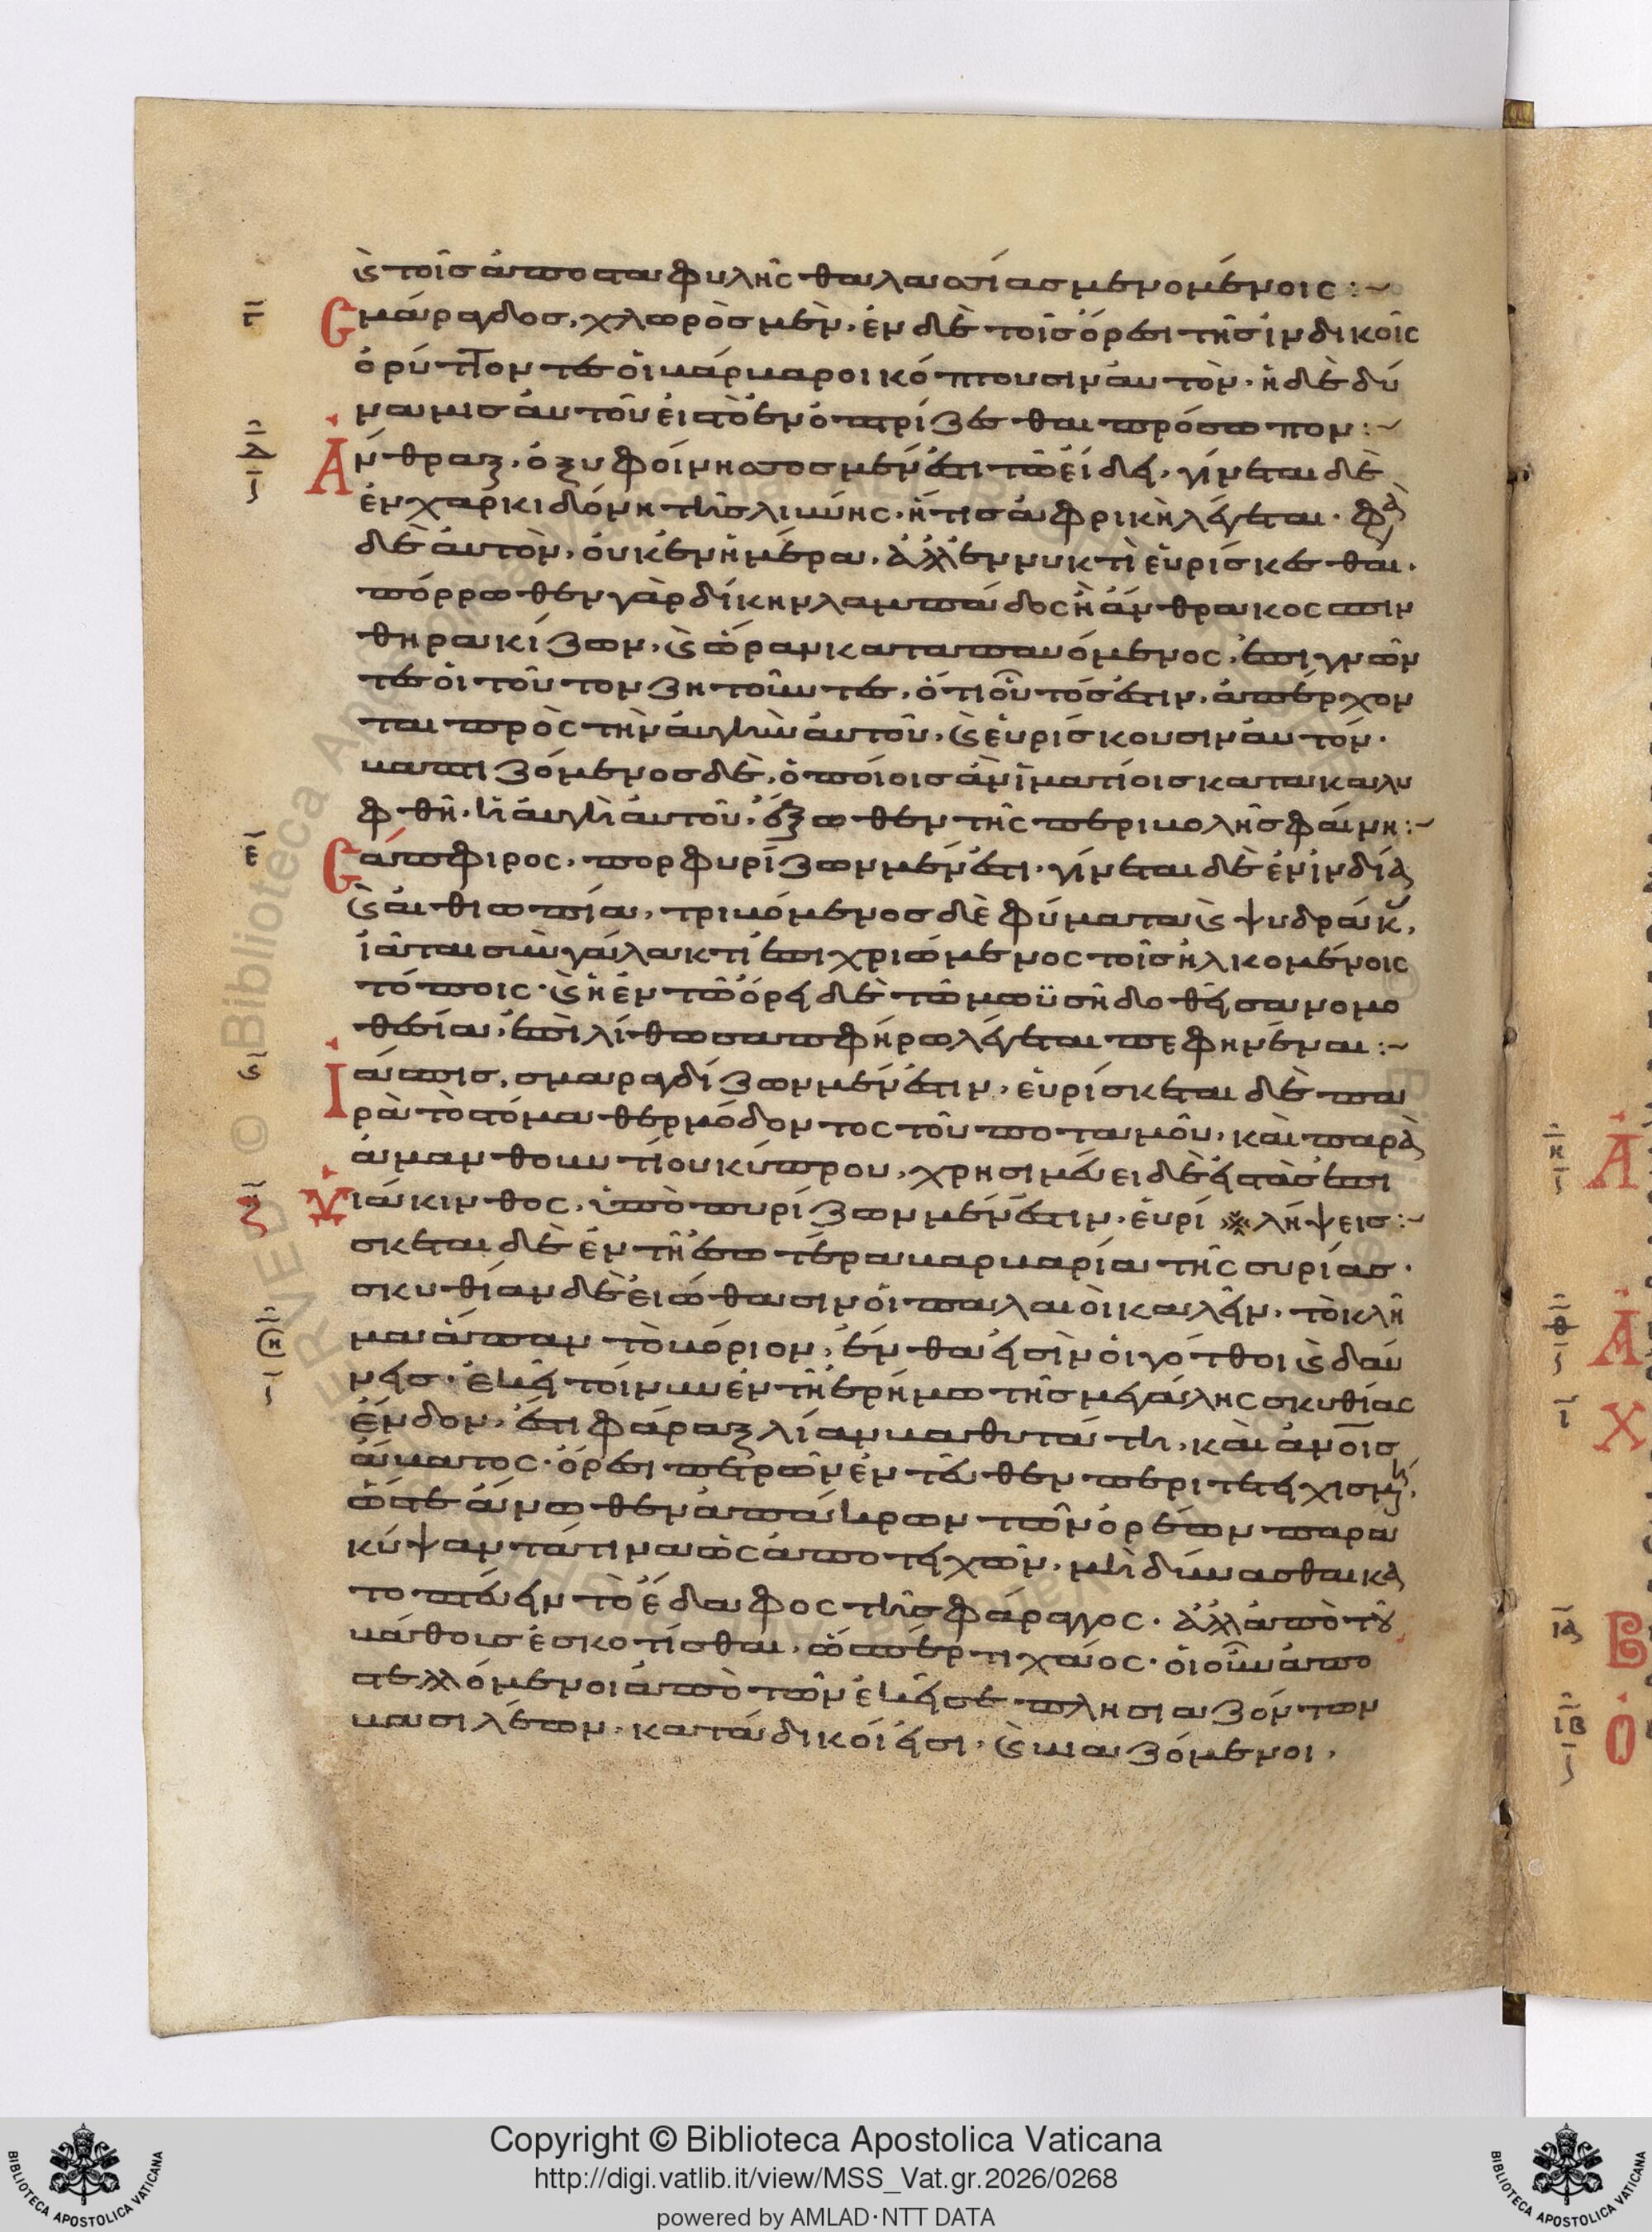 καὶ τοῖς ἀπὸ σταφυλῆς θαλασσίας μενομένοις :~
γ Σμάραγδος, χλωρὸς μὲν· ἐν δὲ τοῖς ὄρεσι τῆς ἰνδικοῖς
ὀρύττοντες οἱ βάρβαροι κόπτουσιν αὐτὸν· ἡ δὲ δύ
ναμις αὐτοῦ εἰς τὸ ἐνοπτρίζεσθαι πρόσωπον :~
δ Ἄνθραξ, ὀξυφοίνισσος μέν ἐστι τῶ εἴδει, γίνεται δὲ
ἐν χαρκιδόνη τῆς λιβύης· ἥτις ἀφρικὴ λέγεται· φα
δὲ αὐτὸν, οὐκ ἐν ἡμέρα, ἀλλ' ἐν νυκτὶ εὑρίσκεσθαι.
πόρρωθεν γὰρ δίκην λαμπάδος ἢ ἄνθρακος σπιν
θηρακίζων, καὶ ὥραν καταπαυόμενος, ἐπιγνῶν
τες οἱ τοῦτον ζητοῦντες, ὅτι οὗτός ἐστιν, ἀπέρχον
ται πρὸς τὴν αὐγὴν αὐτοῦ, καὶ εὑρίσκουσιν αὐτόν.
βασταζόμενος δὲ, ὁποίοις ἂν ἱματίοις κατακαλυ
φθῆ, ἡ αὐγὴ αὐτοῦ, ἔξωθεν τῆς περιβολῆς φαίνη :~
ε Σάπφιρος, πορφυρίζων μέν ἐστι, γίνεται δὲ ἐν ἰνδία
καὶ αἰθιωπία, τριβόμενος δὲ φύματα καὶ ψυδράκ,
ἰᾶται σὺν γάλακτι ἐπιχριώμενος τοῖς ἡλικομένοις
τόποις· καὶ ἡ ἐν τῶ ὄρει δὲ τῶ μωϋσῆ δοθεῖσα νομο
θεσία, ἐπὶ λίθω σαπφήρω λέγεται πεφηνέναι :~
ς Ἴασπις, σμαραγδίζων μέν ἐστιν, εὑρίσκεται δὲ πα
ρὰ τὸ στόμα θερμόδοντος τοῦ ποταμοῦ, καὶ παρὰ
ἀμανθουντίου κύπρου, χρησιμεύει δὲ εἰς τὰς ἐπι
ζ Ὑιάκινθος, ὑποπυρίζων μέν ἐστιν, εὑρί ※ λήψεις :~
σκεται δὲ ἐν τῆ ἐσωτέρα βαρβαρία τῆς συρίας.
σκυθίαν δὲ εἰώθασιν οἱ παλαιοὶ καλεῖν, τὸ κλῆ
η μα ἅπαν τὸ βόριον, ἔνθα εἰσὶν οἱ γότθοι καὶ δαύ
νεις. ἐκεῖ τοίνυν ἐν τῆ ἐρήμω τῆς μεγάλης σκυθίας
ἔνδον, ἐστι φάραξ λίαν βαθυτάτη, καὶ ἀνοις
βάματος· ὄρεσι πετρῶν ἐντεῦθεν περιτετειχισμ
ὥστε ἄνωθεν ἀπ' ἄκρων τῶν ὀρέων παρα
κύψαντά τινα ὡς ἀποτειχῶν, μὴ δύνασθαι κα
τοπτεύειν τὸ ἔδαφος τῆς φάραγγος. ἀλλ' ἀπὸ τοῦ
βάθους ἐσκοτίσθαι, ὥσπερ τι χάος· οἱ οὖν ἀπο
στελλόμενοι ἀπὸ τῶν ἐκεῖσε πλησιαζόντων
βασιλέων, κατάδικοί εἰσι, καὶ βιαζόμενοι,
κ Ἀ
θ Ἀ
ι Χ
ια Β
ιβ Ὀ
Copyright © Biblioteca Apostolica Vaticana
http://digi.vatlib.it/view/MSS_Vat.gr.2026/0268
powered by AMLAD·NTT DATA
BIBLIOTECA APOSTOLICA VATICANA
BIBLIOTECA APOSTOLICA VATICANA